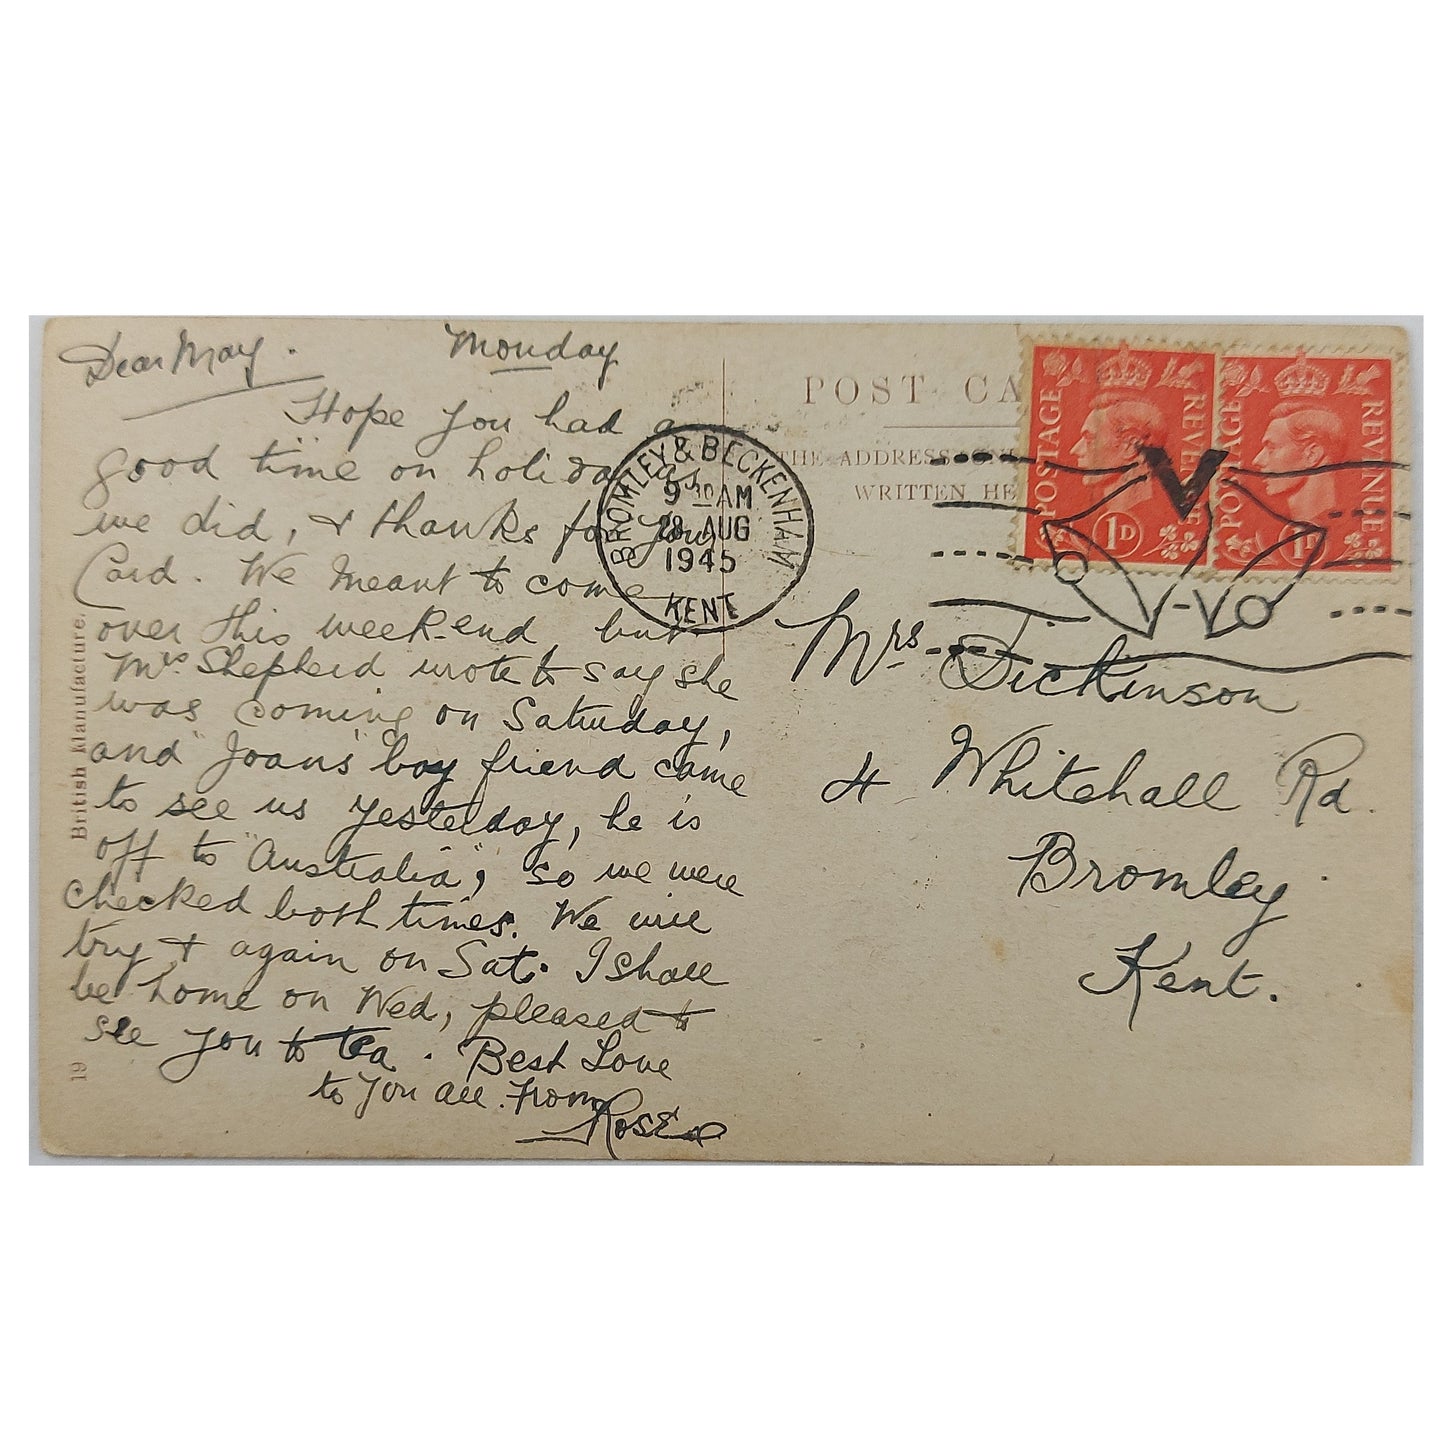 Dear May. Monday
Hope you had a
good time on holiday as
we did, & thanks for your
Card. We meant to come
over this week-end, but
Mrs Shepherd wrote to say she
was coming on Saturday,
and "Joans" boy friend came
to see us yesterday, he is
off to "Australia", so we were
checked both times. We will
try & again on Sat. I shall
be home on Wed, pleased to
see you to tea. Best Love
to you all. From
Rose
British Manufacture.
19
POST CA
THE ADDRESS ON
WRITTEN HE
BROMLEY & BECKENHAM
9 30 AM
28 AUG
1945
KENT
POSTAGE REVENUE
1D
POSTAGE REVENUE
1D
V
Mrs Dickinson
4 Whitehall Rd.
Bromley.
Kent.